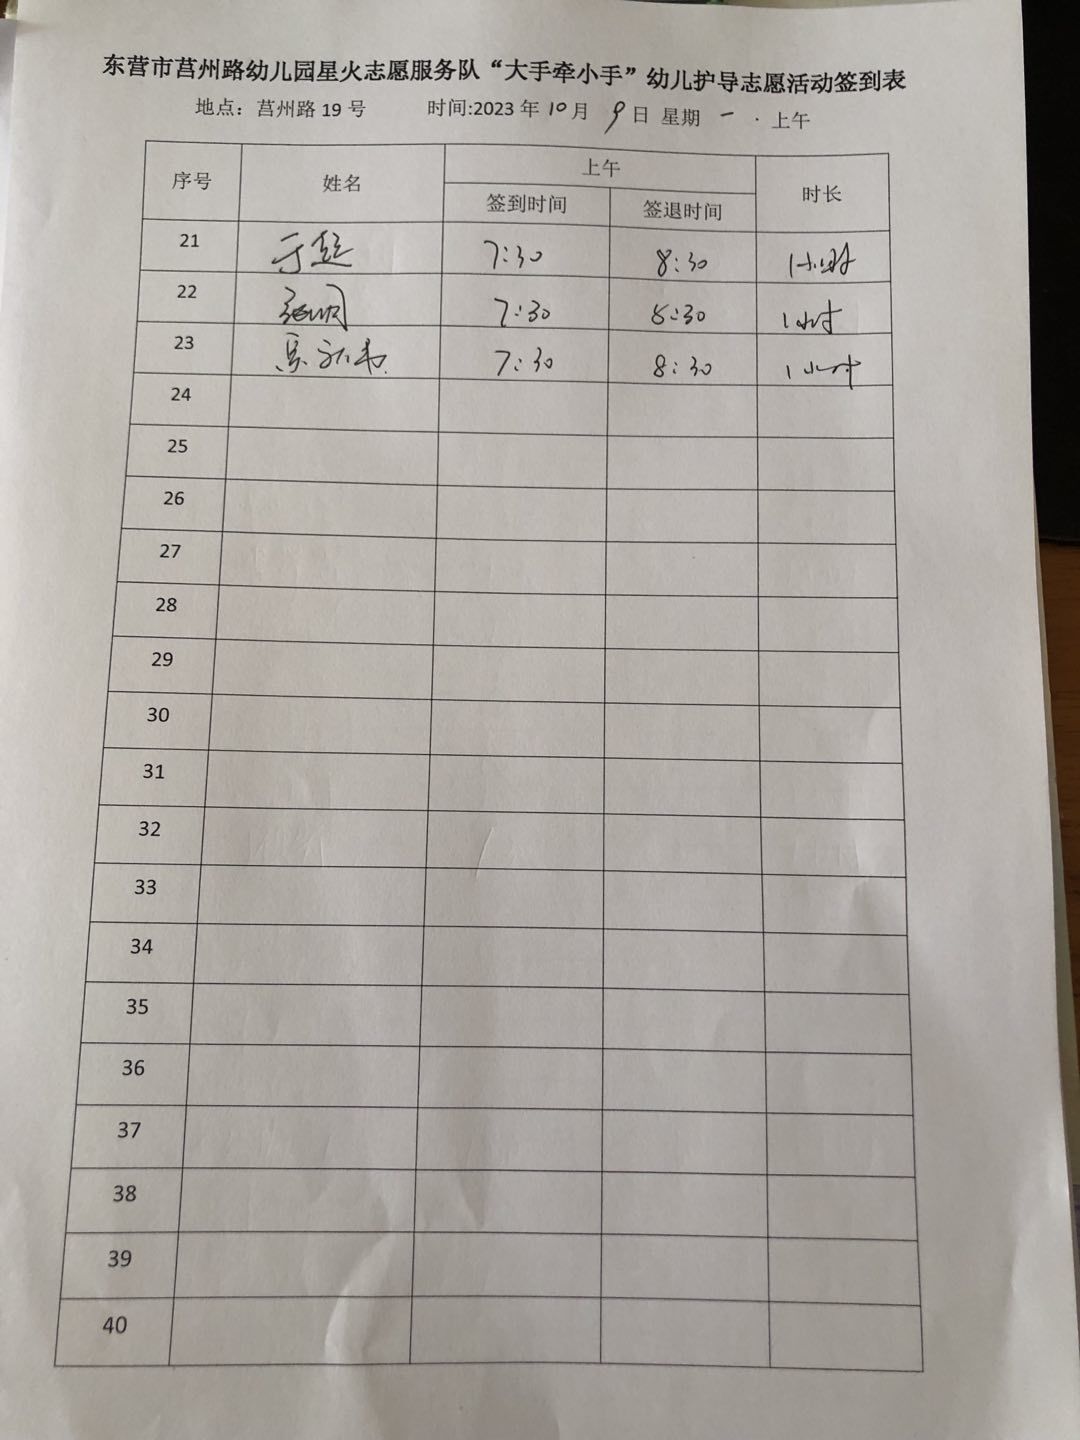 东营市莒州路幼儿园星火志愿服务队“大手牵小手”幼儿护导志愿活动签到表
地点：莒州路 19 号 时间:2023 年 10 月 9 日 星期 一 · 上午
序号 姓名 上午 时长
签到时间 签退时间
21 于超 7:30 8:30 1小时
22 7:30 8:30 1小时
23 7:30 8:30 1小时
24
25
26
27
28
29
30
31
32
33
34
35
36
37
38
39
40